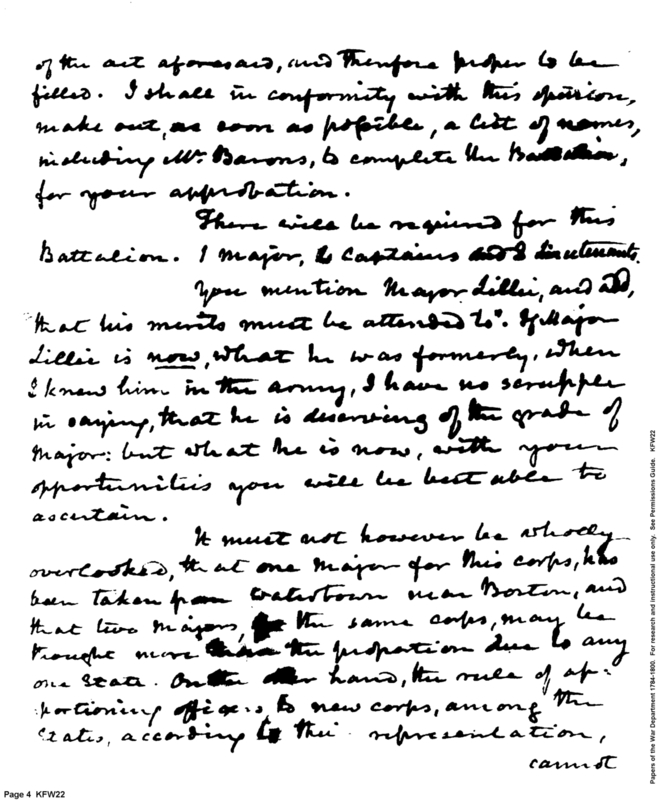 of the act aforesaid, and therefore proper to be
filled. I shall in conformity with this opinion,
make out, as soon as possible, a list of names,
including Mr. Barons, to complete the Battalion,
for your approbation.
There will be required for this
Battalion. 1 Major, Captains and Lieutenants.
You mention Major Lillie, and add,
"that his merits must be attended to". If Major
Lillie is now, what he was formerly, when
I knew him in the army, I have no scrupple
in saying, that he is deserving of the grade of
Major: but what he is now, with your
opportunities you will be best able to
ascertain.
It must not however be wholly
overlooked, that one Major for this corps, has
been taken from Watertown near Boston, and
that two Majors, the same corps, may be
thought more than the proportion due to any
one State. On the other hand, the rule of ap-
portioning officers to new corps, among the
States, according to their representation,
cannot
Page 4 KFW22
Papers of the War Department 1784-1800. For research and instructional use only. See Permissions Guide. KFW22